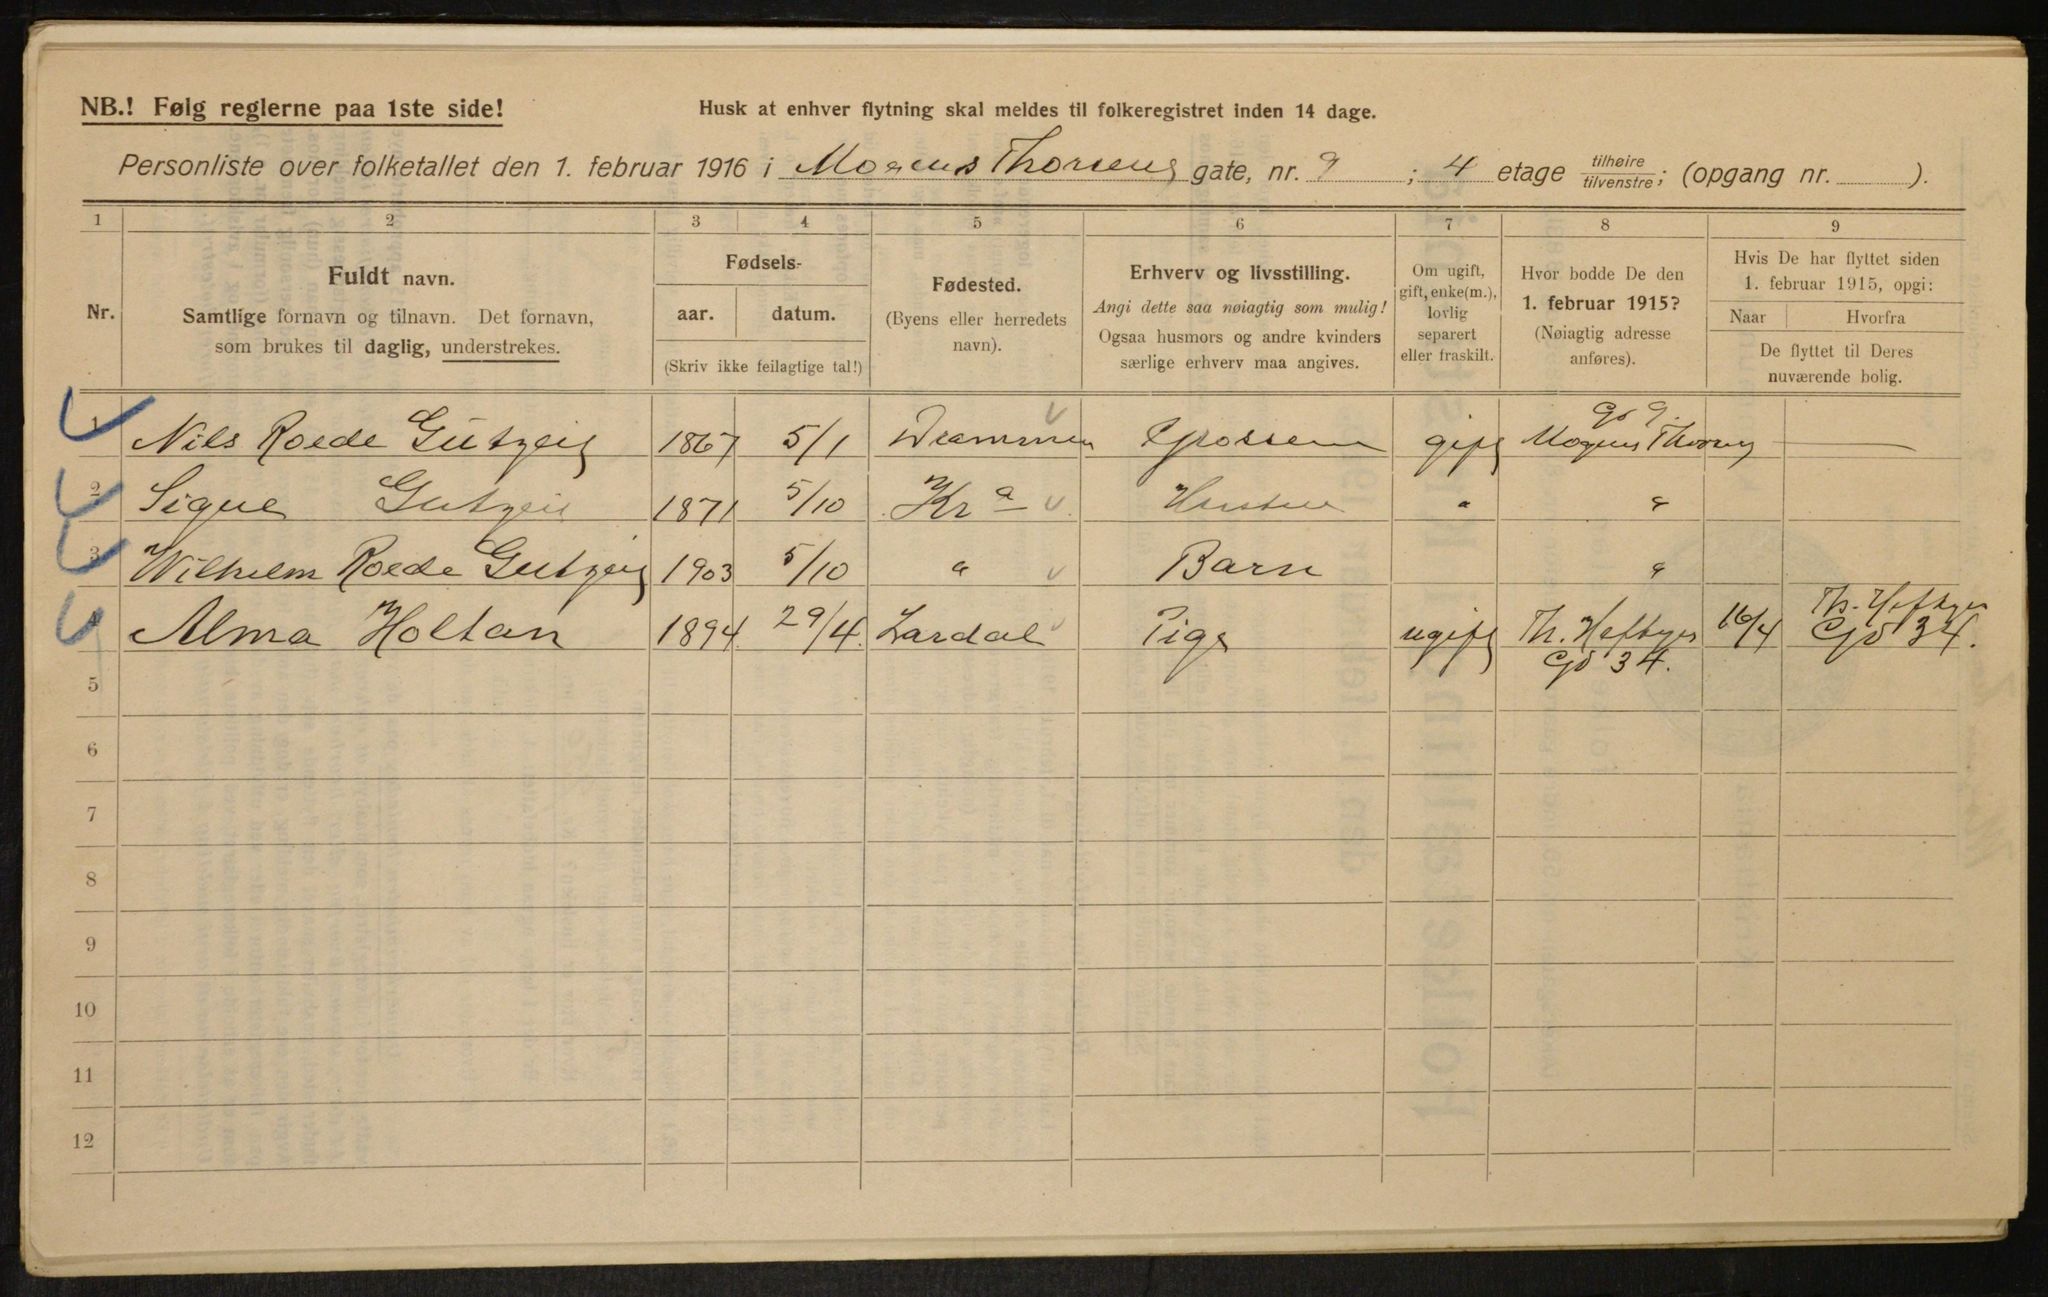 NB.! Følg reglerne paa 1ste side! Husk at enhver flytning skal meldes til folkeregistret inden 14 dage.
Personliste over folketallet den 1. februar 1916 i Mogens Thorsens gate, nr. 9 ; 4 etage tilhøire/tilvenstre; (opgang nr. ).
1 2 3 4 5 6 7 8 9
Nr.
Fuldt navn.
Samtlige fornavn og tilnavn. Det fornavn,
som brukes til daglig, understrekes.
Fødsels-
aar. datum.
(Skriv ikke feilagtige tal!)
Fødested.
(Byens eller herredets
navn).
Erhverv og livsstilling.
Angi dette saa nøiagtig som mulig!
Ogsaa husmors og andre kvinders
særlige erhverv maa angives.
Om ugift,
gift, enke(m.),
lovlig
separert
eller fraskilt.
Hvor bodde De den
1. februar 1915?
(Nøiagtig adresse
anføres).
Hvis De har flyttet siden
1. februar 1915, opgi:
Naar Hvorfra
De flyttet til Deres
nuværende bolig.
1 Nils Roede Gutzeit 1867 5/1 Drammen Grosserer gift Mogens Thorsens Gd 9.
2 Signe Gutzeit 1871 5/10 Kr a Hustru " "
3 Wilhelm Roede Gutzeit 1903 5/10 " Barn "
4 Alma Holtan 1894 29/4 Lardal Pige ugift Th. Heftyes Gd 34. 16/4 Th. Heftyes Gd 34.
5
6
7
8
9
10
11
12